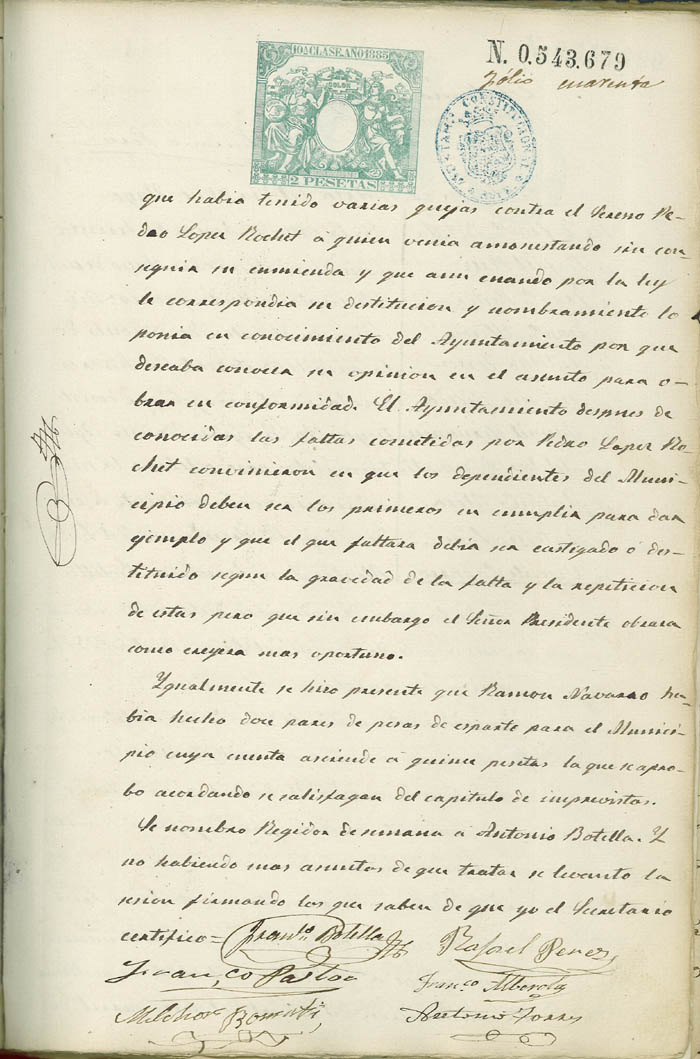 10A CLASE. AÑO 1885
2 PESETAS
N. 0.543.679
folio cuarenta
CONSTITUCIONAL
que habia tenido varias quejas contra el Sereno Pe-
dro Lopez Rochet á quien venia amonestando sin con-
seguir su enmienda y que aun cuando por la ley
le correspondia su destitucion y nombramiento lo
ponia en conocimiento del Ayuntamiento por que
deseaba conocer su opinion en el asunto para o-
brar en conformidad. El Ayuntamiento despues de
conocidas las faltas cometidas por Pedro Lopez Ro-
chet convinieron en que los dependientes del Muni-
cipio deben ser los primeros en cumplir para dar
ejemplo y que el que faltara debia ser castigado ó des-
tituido segun la gravedad de la falta y la repeticion
de estas pero que sin embargo el Señor Presidente obrara
como creyera mas oportuno.
Ygualmente se hizo presente que Ramon Navarro ha-
bia hecho doce pares de de esparto para el Munici-
pio cuya cuenta asciende á quince pesetas la que se apro-
bo acordando se satisfagan del capitulo de imprevistos.
Se nombro Regidor de semana á Antonio Botella. Y
no habiendo mas asuntos de que tratar se levanto la
sesion firmando los que saben de que yo el Secretario
certifico= Franco. Botella Rafael Perez
Franco Pastor Franco Alberola
Melchor Antonio Torres